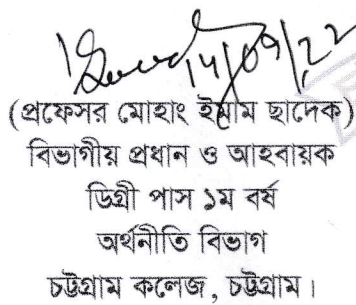 14/09/22
(প্রফেসর মোহাং ইমাম ছাদেক)
বিভাগীয় প্রধান ও আহবায়ক
ডিগ্রী পাস ১ম বর্ষ
অর্থনীতি বিভাগ
চট্টগ্রাম কলেজ, চট্টগ্রাম।